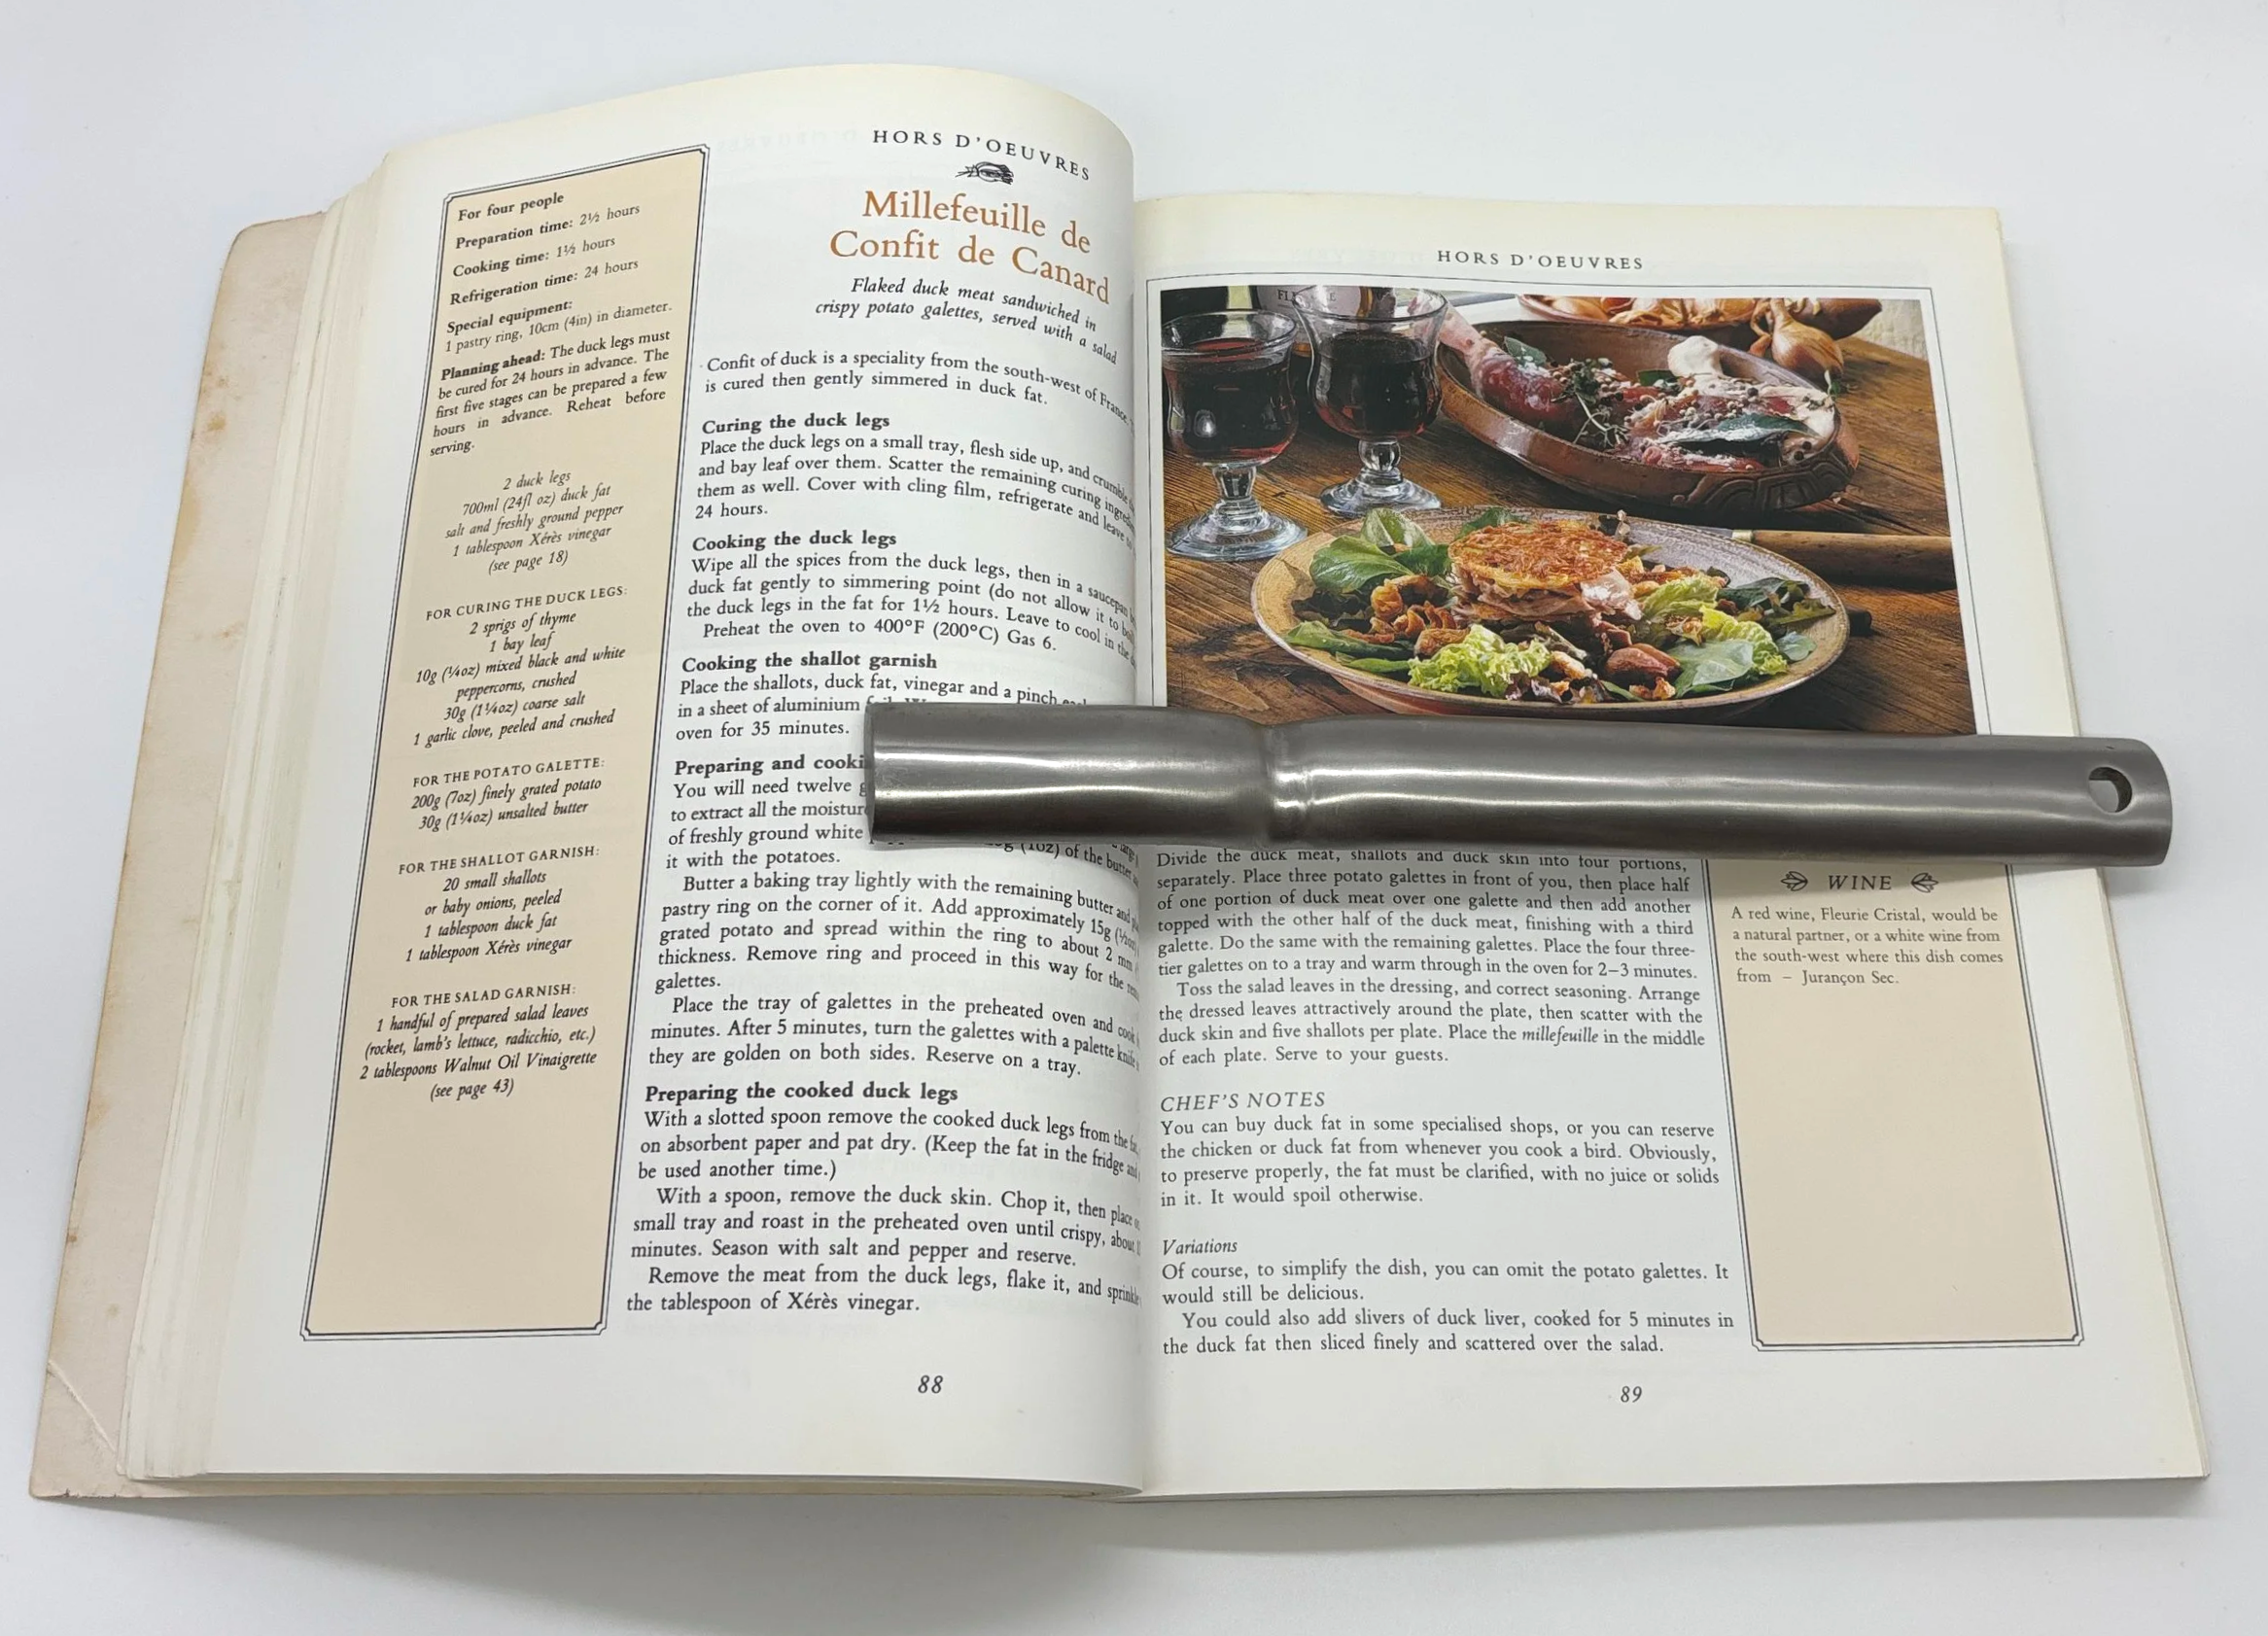 HORS D'OEUVRES
Millefeuille de
Confit de Canard
Flaked duck meat sandwiched in
crispy potato galettes, served with a salad
For four people
Preparation time: 2½ hours
Cooking time: 1½ hours
Refrigeration time: 24 hours
Special equipment:
1 pastry ring, 10cm (4in) in diameter.
Planning ahead: The duck legs must
be cured for 24 hours in advance. The
first five stages can be prepared a few
hours in advance. Reheat before
serving.
2 duck legs
700ml (24fl oz) duck fat
salt and freshly ground pepper
1 tablespoon Xérès vinegar
(see page 18)
FOR CURING THE DUCK LEGS:
2 sprigs of thyme
1 bay leaf
10g (¼oz) mixed black and white
peppercorns, crushed
30g (1¼oz) coarse salt
1 garlic clove, peeled and crushed
FOR THE POTATO GALETTE:
200g (7oz) finely grated potato
30g (1¼oz) unsalted butter
FOR THE SHALLOT GARNISH:
20 small shallots
or baby onions, peeled
1 tablespoon duck fat
1 tablespoon Xérès vinegar
FOR THE SALAD GARNISH:
1 handful of prepared salad leaves
(rocket, lamb's lettuce, radicchio, etc.)
2 tablespoons Walnut Oil Vinaigrette
(see page 43)
Confit of duck is a speciality from the south-west of France.
is cured then gently simmered in duck fat.
Curing the duck legs
Place the duck legs on a small tray, flesh side up, and crumble
and bay leaf over them. Scatter the remaining curing
them as well. Cover with cling film, refrigerate and leave
24 hours.
Cooking the duck legs
Wipe all the spices from the duck legs, then in a saucepan
duck fat gently to simmering point (do not allow it to
the duck legs in the fat for 1½ hours. Leave to cool in the
Preheat the oven to 400°F (200°C) Gas 6.
Cooking the shallot garnish
Place the shallots, duck fat, vinegar and a pinch
in a sheet of aluminium
oven for 35 minutes.
Preparing and
You will need twelve
to extract all the
of freshly ground white (1oz) of the butter
it with the potatoes.
Butter a baking tray lightly with the remaining butter and
pastry ring on the corner of it. Add approximately 15g
grated potato and spread within the ring to about 2 mm
thickness. Remove ring and proceed in this way for the
galettes.
Place the tray of galettes in the preheated oven and cook
minutes. After 5 minutes, turn the galettes with a palette knife
they are golden on both sides. Reserve on a tray.
Preparing the cooked duck legs
With a slotted spoon remove the cooked duck legs from the
on absorbent paper and pat dry. (Keep the fat in the fridge
be used another time.)
With a spoon, remove the duck skin. Chop it, then place
small tray and roast in the preheated oven until crispy, about
minutes. Season with salt and pepper and reserve.
Remove the meat from the duck legs, flake it, and
the tablespoon of Xérès vinegar.
88
HORS D'OEUVRES
Divide the duck meat, shallots and duck skin into four portions,
separately. Place three potato galettes in front of you, then place half
of one portion of duck meat over one galette and then add another
topped with the other half of the duck meat, finishing with a third
galette. Do the same with the remaining galettes. Place the four three-
tier galettes on to a tray and warm through in the oven for 2–3 minutes.
Toss the salad leaves in the dressing, and correct seasoning. Arrange
the dressed leaves attractively around the plate, then scatter with the
duck skin and five shallots per plate. Place the millefeuille in the middle
of each plate. Serve to your guests.
CHEF'S NOTES
You can buy duck fat in some specialised shops, or you can reserve
the chicken or duck fat from whenever you cook a bird. Obviously,
to preserve properly, the fat must be clarified, with no juice or solids
in it. It would spoil otherwise.
Variations
Of course, to simplify the dish, you can omit the potato galettes. It
would still be delicious.
You could also add slivers of duck liver, cooked for 5 minutes in
the duck fat then sliced finely and scattered over the salad.
WINE
A red wine, Fleurie Cristal, would be
a natural partner, or a white wine from
the south-west where this dish comes
from – Jurançon Sec.
89